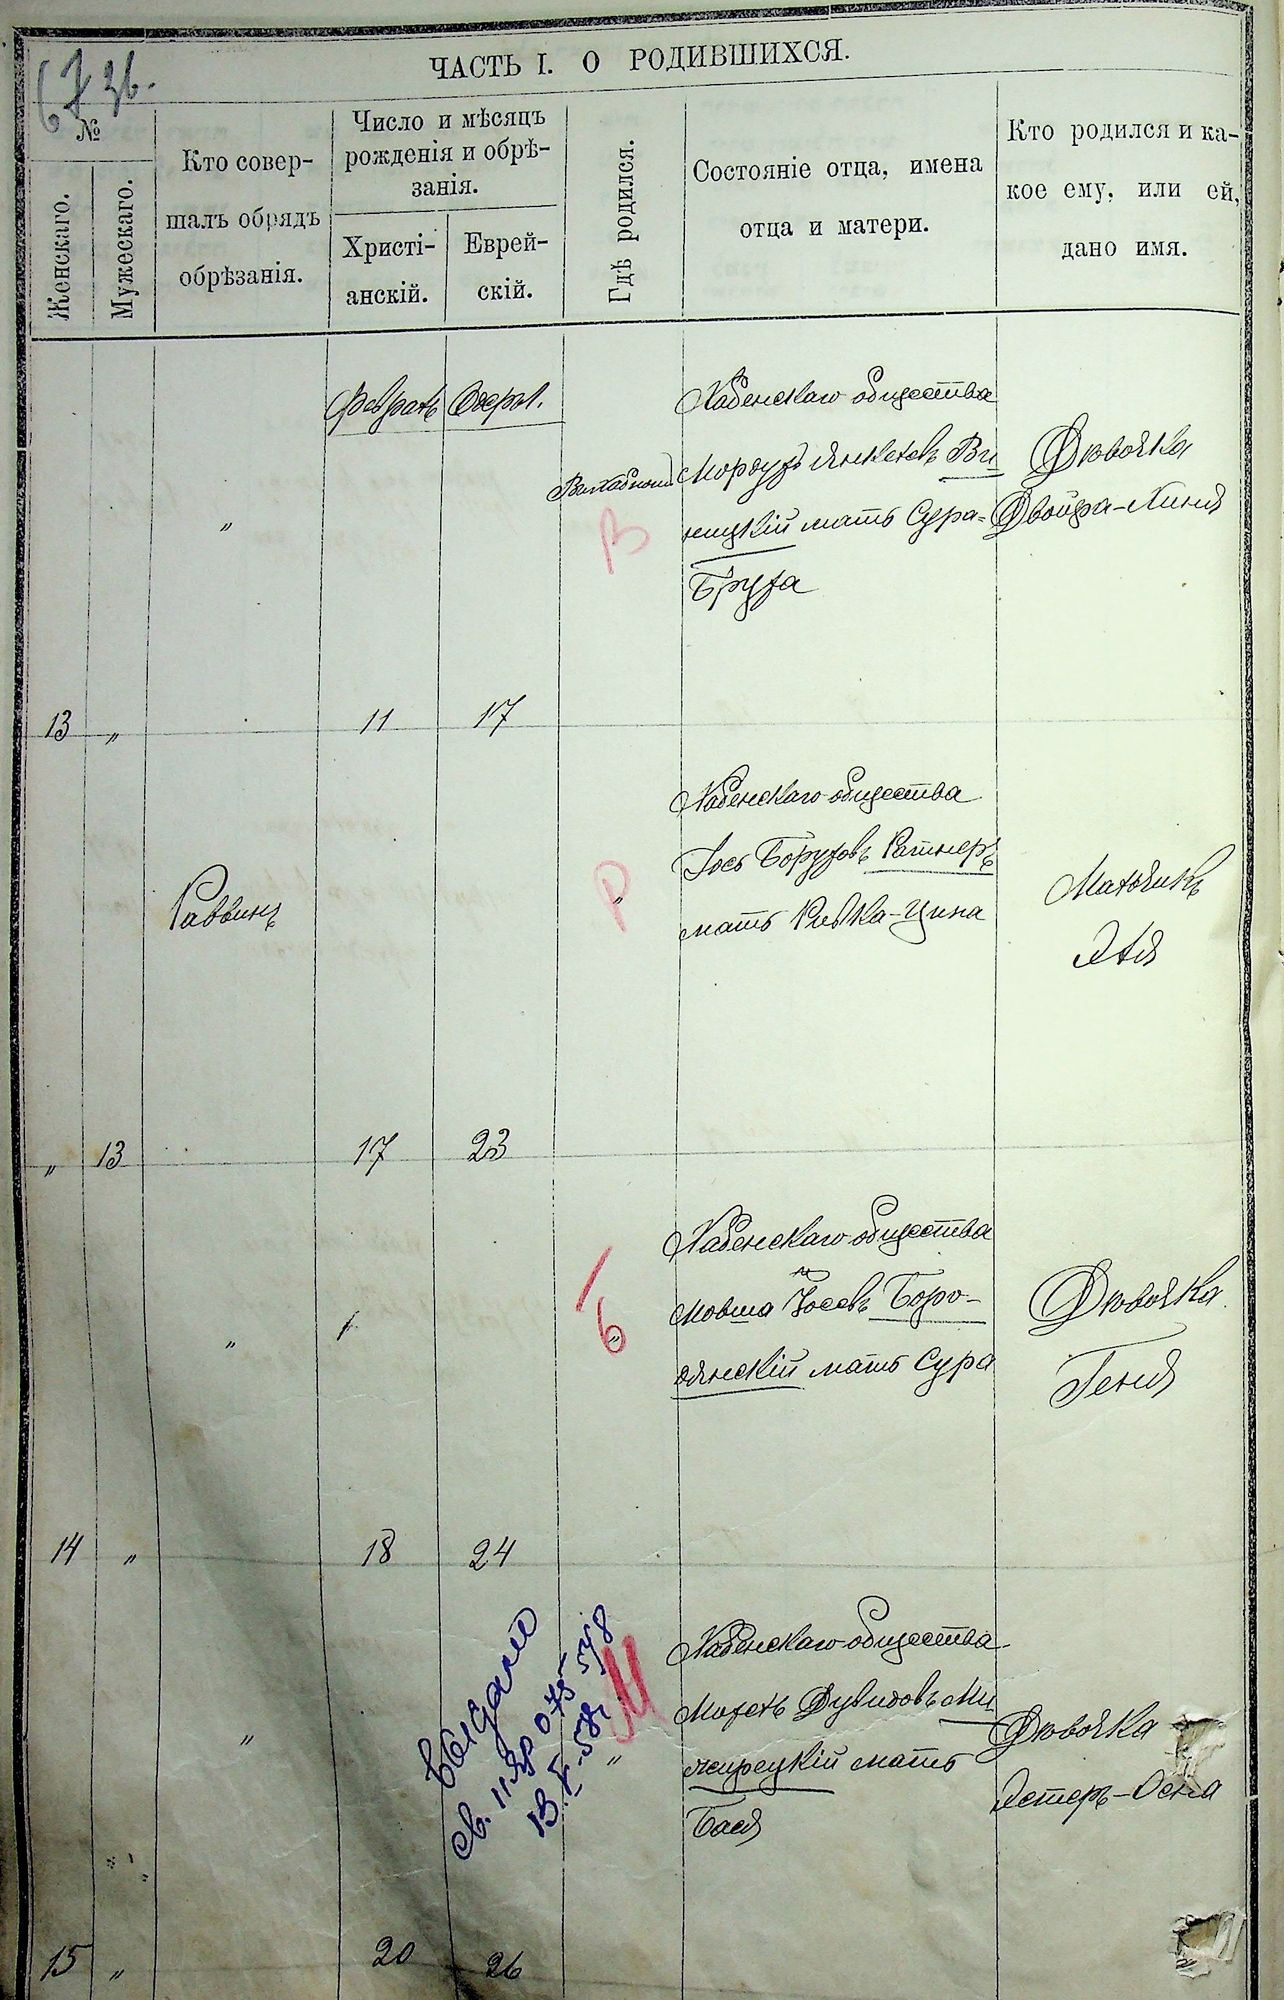 ЧАСТЬ I. О РОДИВШИХСЯ.
№
Женскаго.
Мужескаго.
Кто совер-
шалъ обрядъ
обрѣзанія.
Число и мѣсяцъ
рожденія и обрѣ-
занія.
Христі-
анскій.
Еврей-
скій.
Гдѣ родился.
Состояніе отца, имена
отца и матери.
Кто родился и ка-
кое ему, или ей,
дано имя.
Февраль
Хабенскаго общества
Мордухъ Янкелевъ Ви
ницкій мать Сура-
Бруха
Дѣвочка
Двойра-Хиня
В
"
13 " 11 17
Раввинъ
Хабенскаго общества
Іось Боруховъ Ратнеръ
мать Ривка-Цина
Мальчикъ
Эля
Р
"
" 13 17 23
Хабенскаго общества
Мовша Іосевъ Боро-
дянскій мать Сура
Дѣвочка
Геня
Б
"
"
14 " 18 24
Хабенскаго общества
Мохель Дувидовъ Ми
жирецкій мать
Бася
Дѣвочка
Эстеръ-Осна
М
"
"
выдано
св.
15 " 20 26